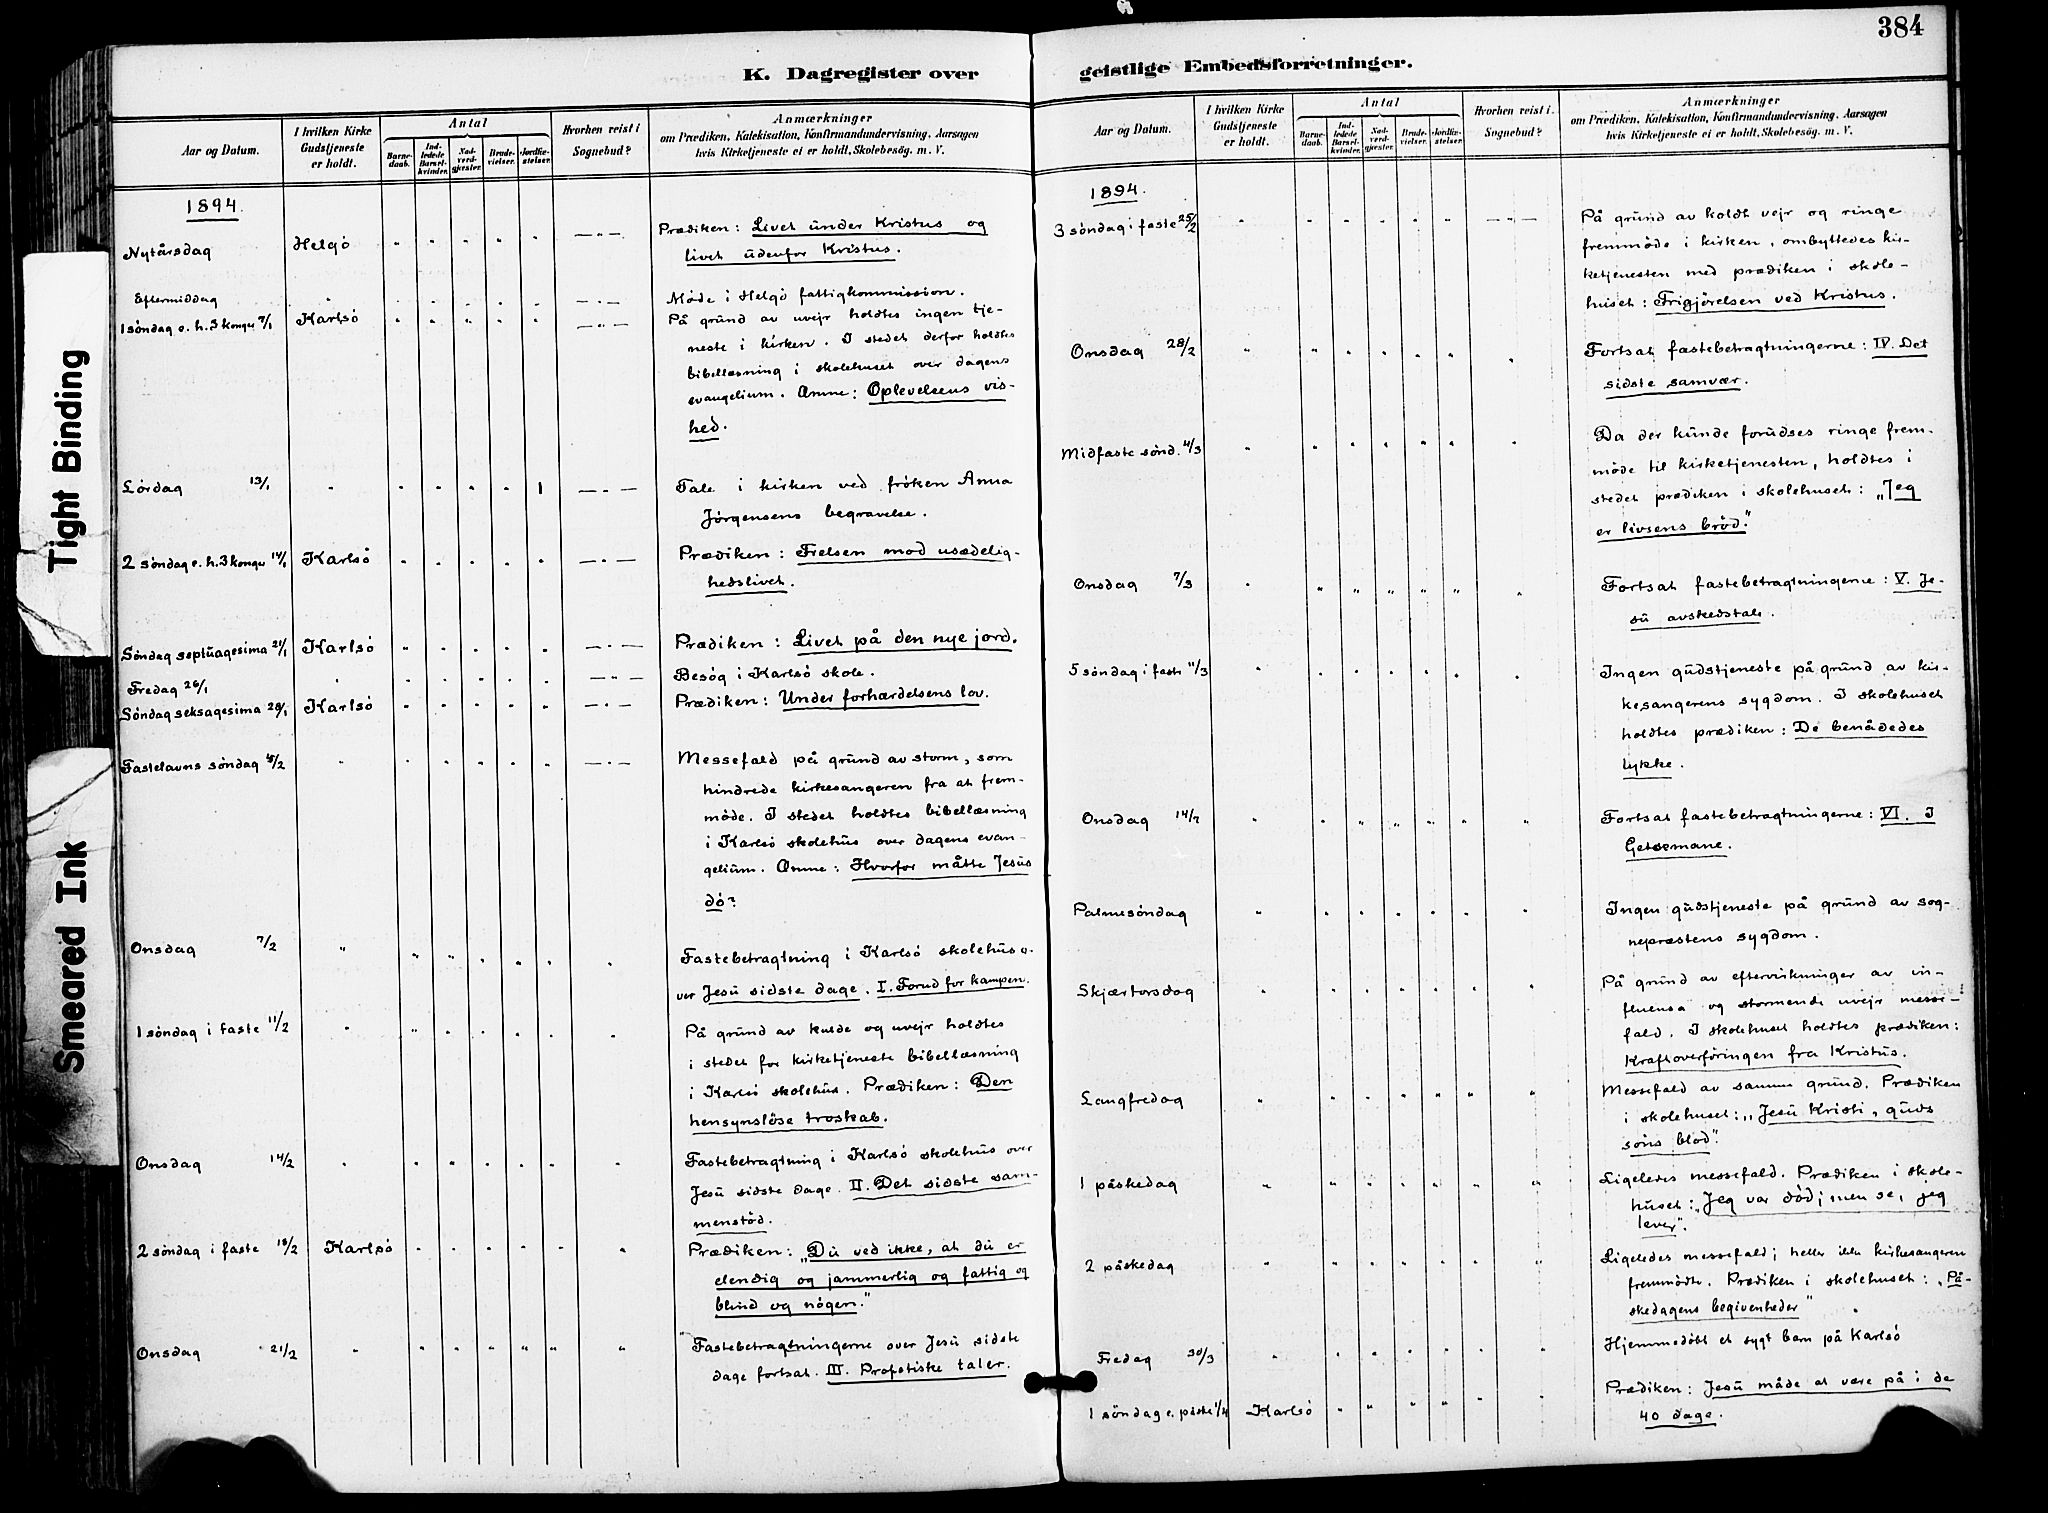 384
K. Dagregister over
geistlige Embedsforretninger.
Aar og Datum.
I hvilken Kirke
Gudstjeneste
er holdt.
Antal
Barne-
daab.
Ind-
ledede
Barsel-
kvinder.
Nad-
verd-
gjester.
Brude-
vielser.
Jordfæ-
stelser.
Hvorhen reist i
Sognebud?
Anmærkninger
om Prædiken, Katekisation, Konfirmandundervisning, Aarsagen
hvis Kirketjeneste ei er holdt, Skolebesøg. m. V.
1894.
Nytårsdag Helgö Prædiken: Livet under Kristus og
livet udenfor Kristus.
Eftermiddag Möde i Helgö fattigkommission.
1 söndag e. h. 3 konger 7/1 Karlsö På grund av uvejr holdtes ingen tje-
neste i kirken. I stedet derfor holdtes
bibellæsning i skolehuset over dagens
evangelium. Æmne: Oplevelsens vis-
hed.
Lördag 13/1 1 Tale i kirken ved fröken Anna
Jörgensens begravelse.
2 söndag e. h. 3 konger 14/1 Karlsö Prædiken: Frelsen mod usædelig-
hedslivet.
Söndag septuagesima 21/1 Karlsö Prædiken: Livet på den nye jord.
Fredag 26/1 Besög i Karlsö skole.
Söndag seksagesima 28/1 Karlsö Prædiken: Under forhærdelsens lov.
Fastelavns söndag 4/2 Messefald på grund av storm, som
hindrede kirkesangeren fra at frem-
möde. I stedet holdtes bibellæsning
i Karlsö skolehus over dagens evan-
gelium. Æmne: Hvorfor måtte Jesus
dö?
Onsdag 7/2 Fastebetragtning i Karlsö skolehus o-
ver Jesu sidste dage. I. Forud for kampen.
1 söndag i faste 11/2 På grund av kulde og uvejr holdtes
i stedet for kirketjeneste bibellæsning
i Karlsö skolehus. Prædiken: Den
hensynslöse troskab.
Onsdag 14/2 Fastebetragtning i Karlsö skolehus over
Jesu sidste dage. II. Det sidste sam-
menstöd.
2 söndag i faste 18/2 Karlsö Prædiken: "Du ved ikke, at du er
elendig og jammerlig og fattig og
blind og nögen."
Onsdag 21/2 Fastebetragtningerne over Jesu sidste
dage fortsat. III. Profetiske taler.
Aar og Datum.
I hvilken Kirke
Gudstjeneste
er holdt.
Antal
Barne-
daab.
Ind-
ledede
Barsel-
kvinder.
Nad-
verd-
gjester.
Brude-
vielser.
Jordfæ-
stelser.
Hvorhen reist i
Sognebud?
Anmærkninger
om Prædiken, Katekisation, Konfirmandundervisning, Aarsagen
hvis Kirketjeneste ei er holdt, Skolebesøg. m. V.
1894.
3 söndag i faste 25/2 På grund av koldt vejr og ringe
fremmöde i kirken, ombyttedes kir-
ketjenesten med prædiken i skole-
huset: Frigjörelsen ved Kristus.
Onsdag 28/2 Fortsat fastebetragtningerne: IV. Det
sidste samvær.
Midfaste sönd. 4/3 Da der kunde forudses ringe frem-
möde til kirketjenesten, holdtes i
stedet prædiken i skolehuset: "Jeg
er livsens bröd."
Onsdag 7/3 Fortsat fastebetragtningerne: V. Je-
su avskedstale.
5 söndag i faste 11/3 Ingen gudstjeneste på grund av kir-
kesangerens sygdom. I skolehuset
holdtes prædiken: De benådedes
lykke.
Onsdag 14/3 Fortsat fastebetragtningerne: VI. I
Getsemane.
Palmesöndag Ingen gudstjeneste på grund av sog-
nepræstens sygdom.
Skjærtorsdag På grund av eftervirkninger av in-
fluensa og stormende uvejr messe-
fald. I skolehuset holdtes prædiken:
Kraftoverföringen fra Kristus.
Langfredag Messefald av samme grund. Prædiken
i skolehuset: "Jesu Kristi, guds
söns blod".
1 påskedag Ligeledes messefald. Prædiken i skole-
huset: "Jeg var död; men se, jeg
lever".
2 påskedag Ligeledes messefald; heller ikke kirkesangeren
fremmödte. Prædiken i skolehuset: "På-
skedagens begivenheder"
Fredag 30/3 Hjemmedöbt et sygt barn på Karlsö
1 söndag e. påske 1/4 Karlsö Prædiken: Jesu måde at være på i de
40 dage.
Tight Binding
Smeared Ink